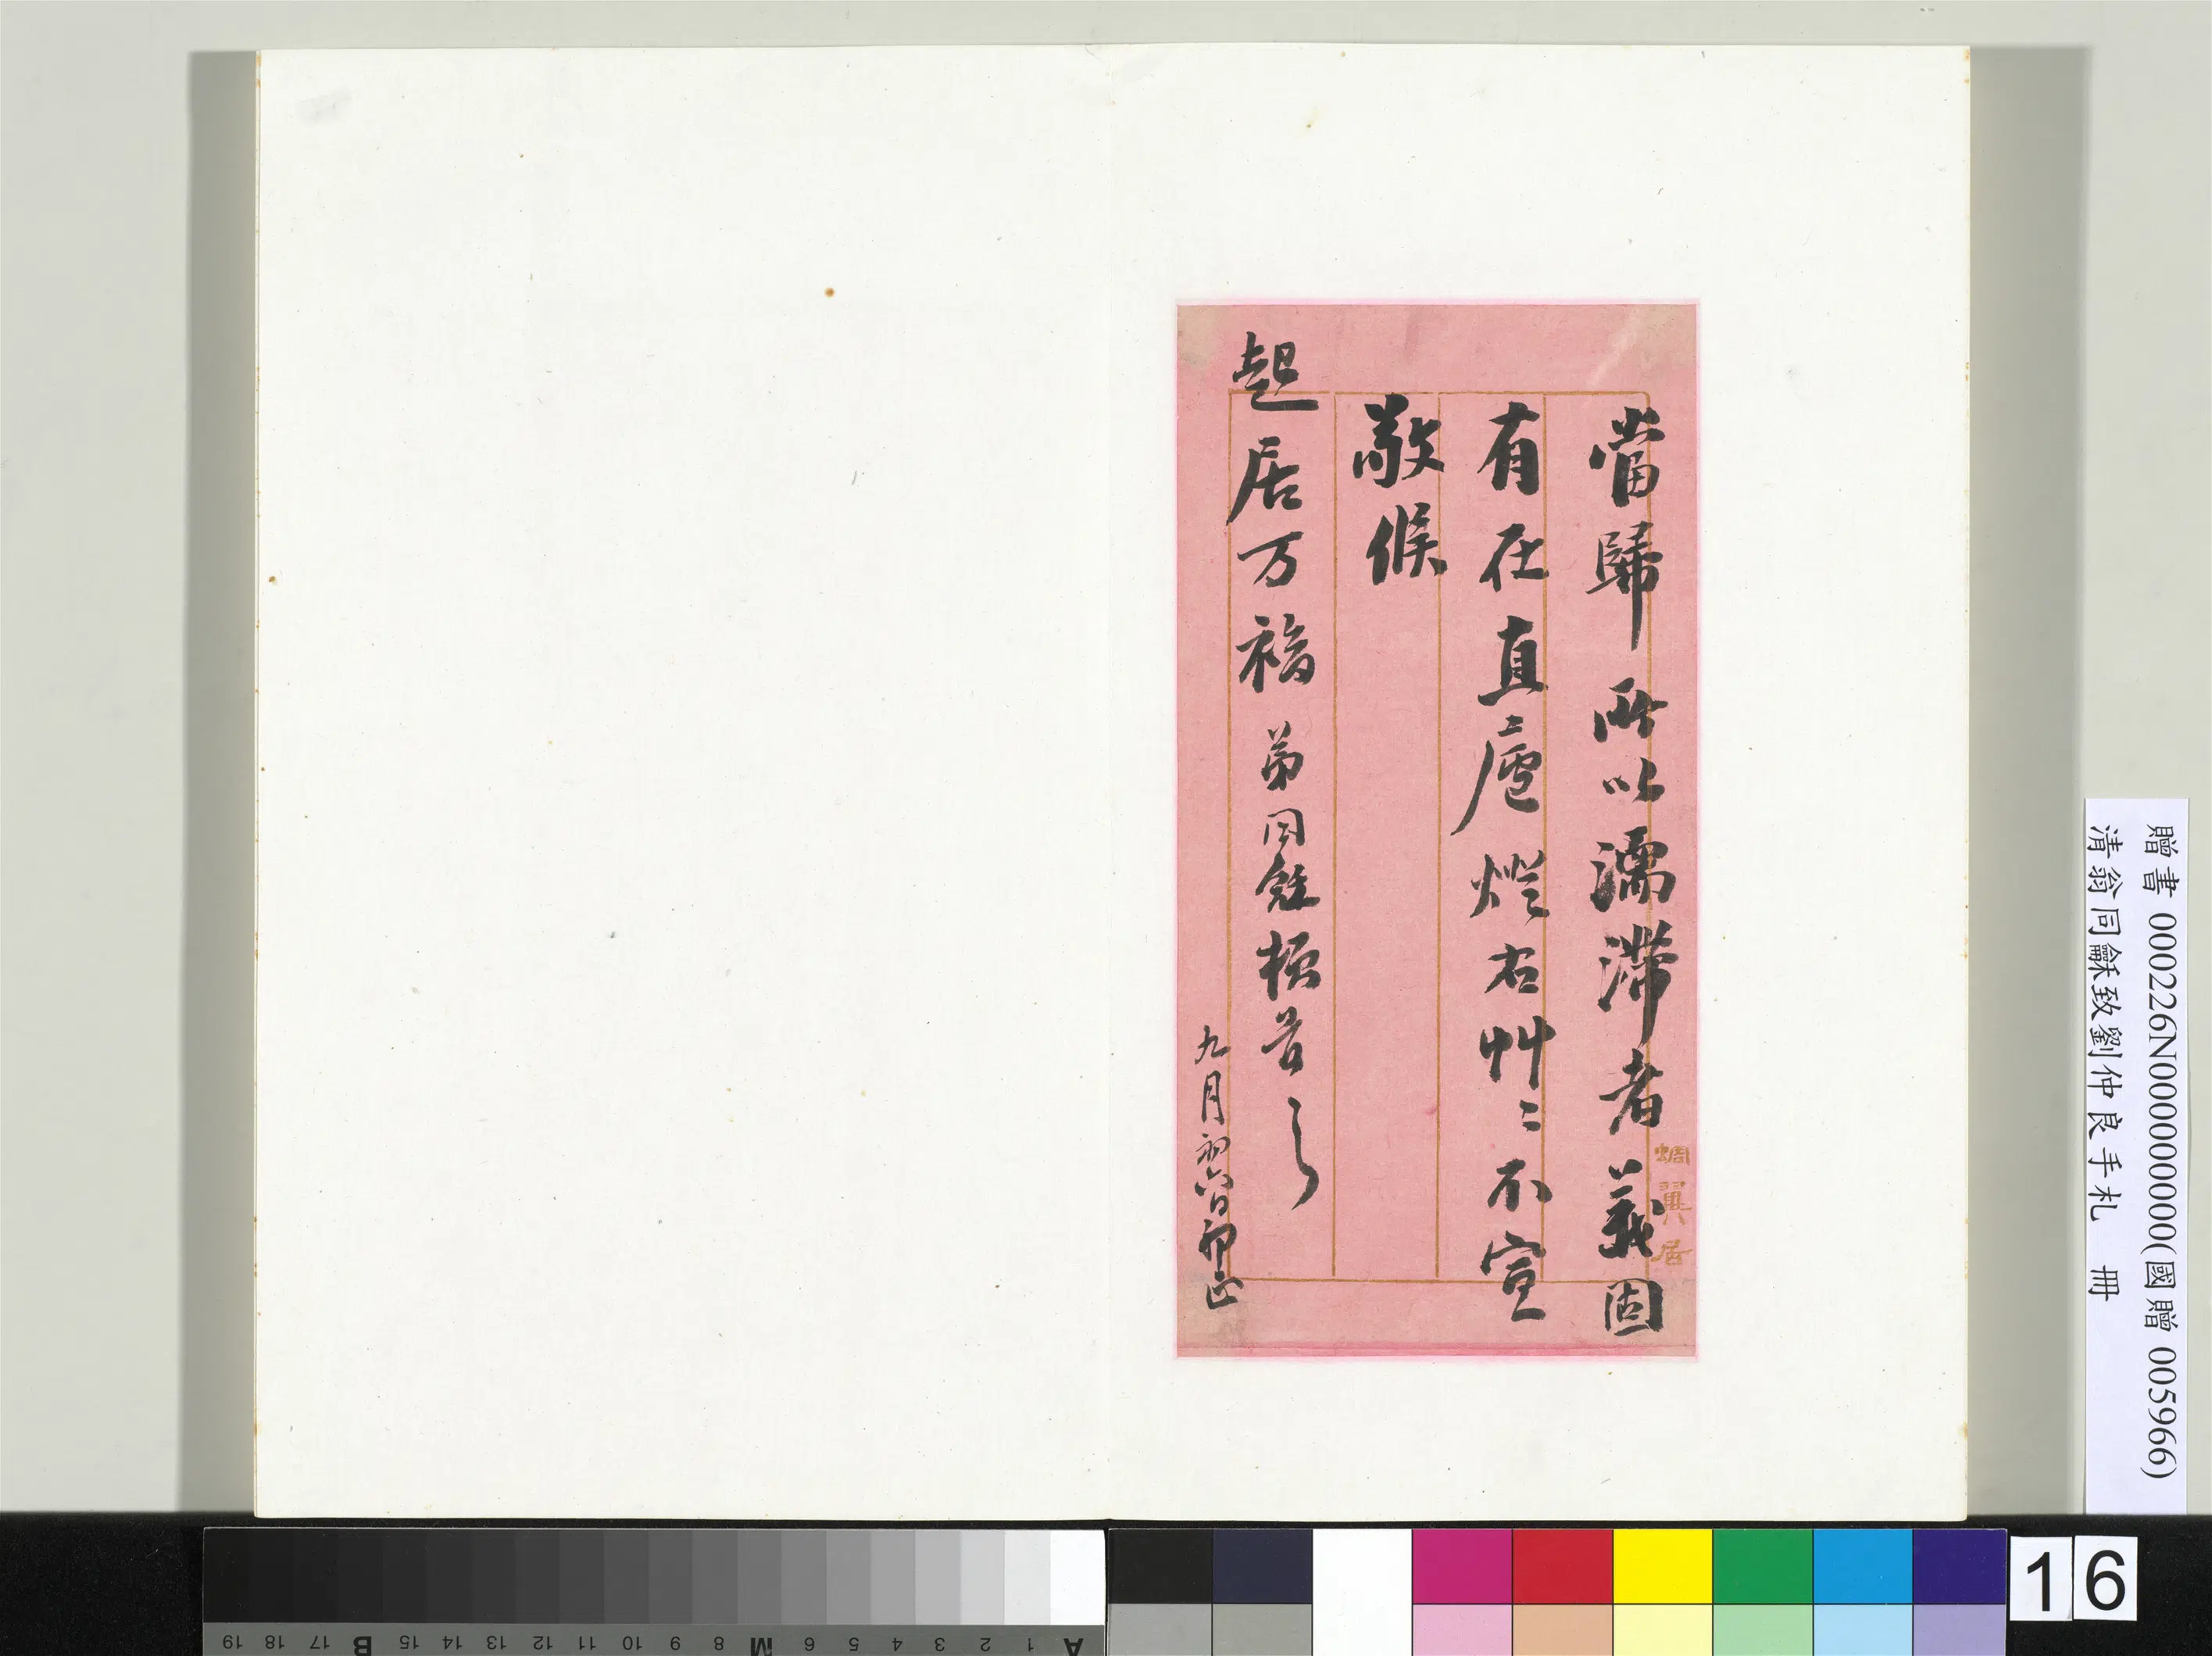 當歸所以濡滯者義固
有在直廬燈右艸艸不宣
敬候
起居万福弟同龢頓首
九月初六日卯正
蜩翼居
贈書 000226N000000000(國贈 005966)
清翁同龢致劉仲良手札 冊
A 1 2 3 4 5 6 M 8 9 10 11 12 13 14 15 B 17 18 19
16